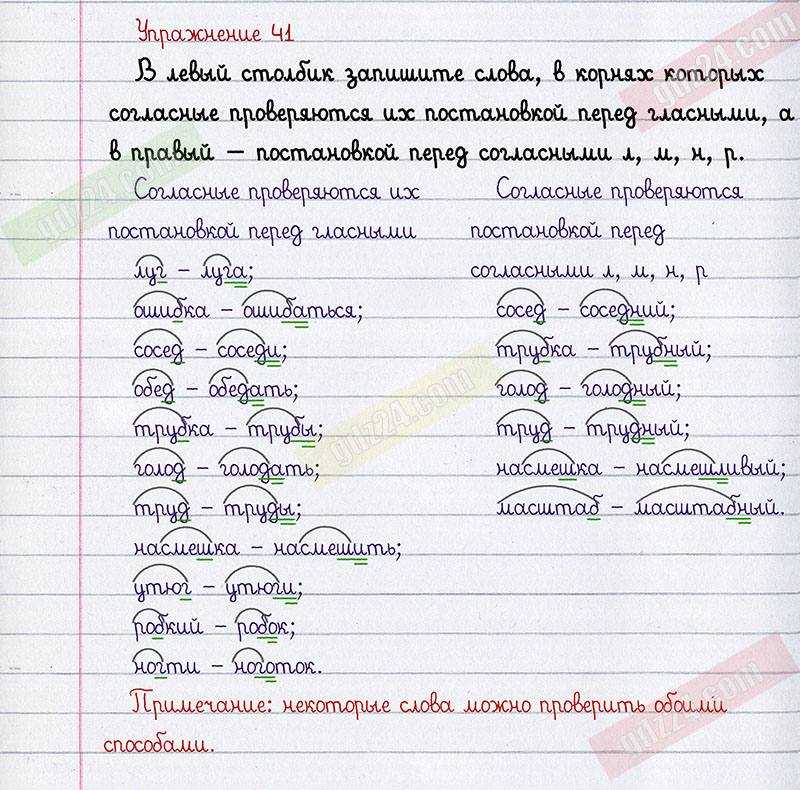 Упражнение 41
В левый столбик запишите слова, в корнях которых
согласные проверяются их постановкой перед гласными, а
в правый – постановкой перед согласными л, м, н, р.
Согласные проверяются их
постановкой перед гласными
луг – луга;
ошибка – ошибаться;
сосед – соседи;
обед – обедать;
трубка – трубы;
голод – голодать;
труд – труды;
насмешка – насмешить;
утюг – утюги;
робкий – робок;
ногти – ноготок.
Согласные проверяются
постановкой перед
согласными л, м, н, р
сосед – соседний;
трубка – трубный;
голод – голодный;
труд – трудный;
насмешка – насмешливый;
масштаб – масштабный.
Примечание: некоторые слова можно проверить обоими
способами.
gdz24.com
gdz24.com
gdz24.com
gdz24.com